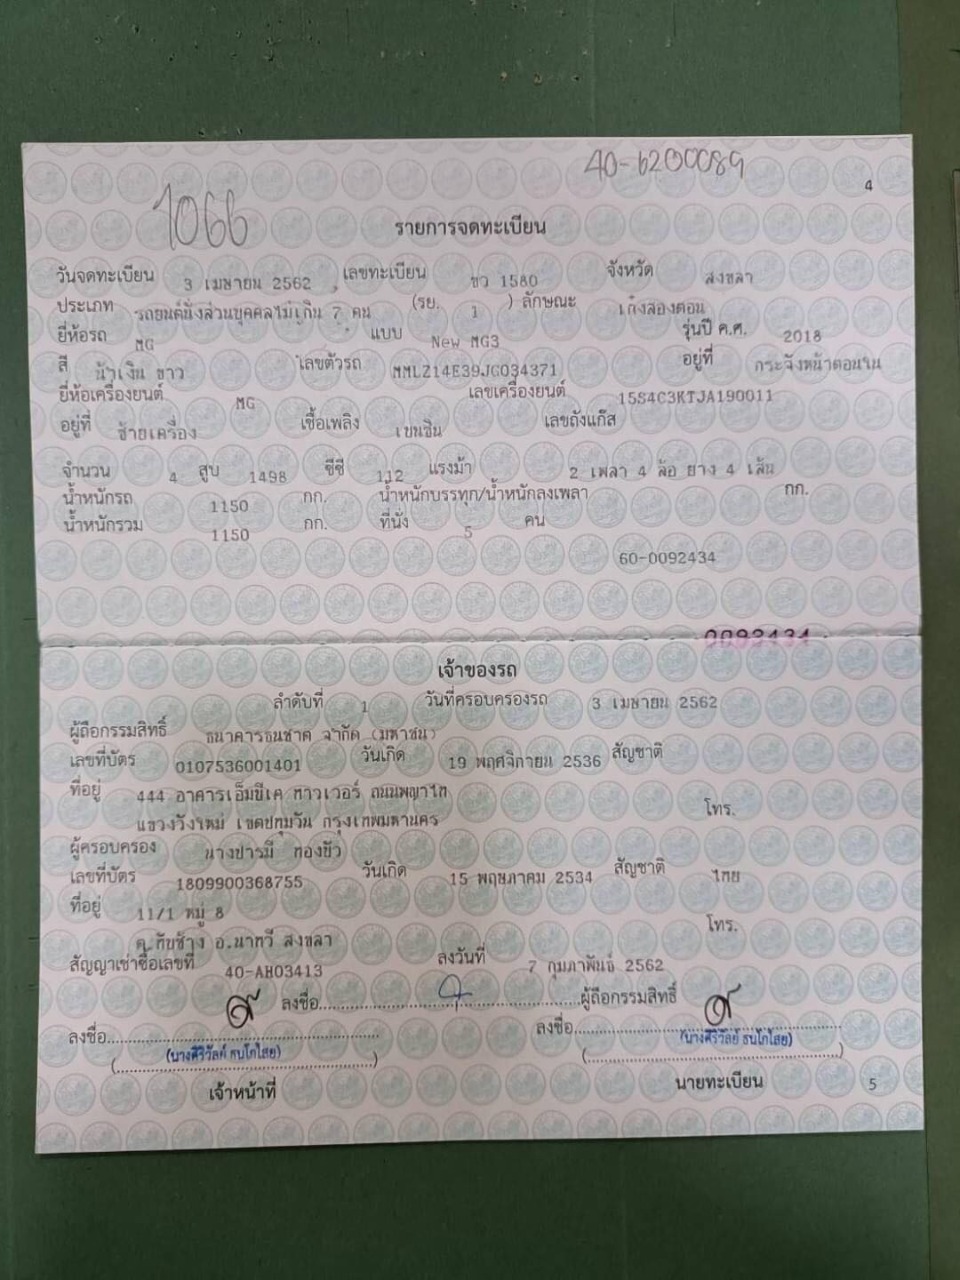 40-6200089
4
1066
รายการจดทะเบียน
วันจดทะเบียน 3 เมษายน 2562 เลขทะเบียน ขว 1580 จังหวัด สงขลา
ประเภท รถยนต์นั่งส่วนบุคคลไม่เกิน 7 คน (รย. 1 ) ลักษณะ เก๋งสองตอน
ยี่ห้อรถ MG แบบ New MG3 รุ่นปี ค.ศ. 2018
สี น้ำเงิน ขาว เลขตัวรถ MMLZ14E39JG034371 อยู่ที่ กระจังหน้าตอนใน
ยี่ห้อเครื่องยนต์ MG เลขเครื่องยนต์ 15S4C3KTJA190011
อยู่ที่ ซ้ายเครื่อง เชื้อเพลิง เบนซิน เลขถังแก๊ส
จำนวน 4 สูบ 1498 ซีซี 112 แรงม้า 2 เพลา 4 ล้อ ยาง 4 เส้น
น้ำหนักรถ 1150 กก. น้ำหนักบรรทุก/น้ำหนักลงเพลา กก.
น้ำหนักรวม 1150 กก. ที่นั่ง 5 คน
60-0092434
0092434
เจ้าของรถ
ลำดับที่ 1 วันที่ครอบครองรถ 3 เมษายน 2562
ผู้ถือกรรมสิทธิ์ ธนาคารธนชาต จำกัด (มหาชน)
เลขที่บัตร 0107536001401 วันเกิด 19 พฤศจิกายน 2536 สัญชาติ
ที่อยู่ 444 อาคารเอ็มบีเค ทาวเวอร์ ถนนพญาไท
แขวงวังใหม่ เขตปทุมวัน กรุงเทพมหานคร โทร.
ผู้ครอบครอง นางปารมี ทองขิว
เลขที่บัตร 1809900368755 วันเกิด 15 พฤษภาคม 2534 สัญชาติ ไทย
ที่อยู่ 11/1 หมู่ 8
ต.ทับช้าง อ.นาทวี สงขลา โทร.
สัญญาเช่าซื้อเลขที่ 40-AH03413 ลงวันที่ 7 กุมภาพันธ์ 2562
ลงชื่อ ผู้ถือกรรมสิทธิ์
ลงชื่อ ลงชื่อ
(นางศิริวัลย์ ธนโกไสย) (นางศิริวัลย์ ธนโกไสย)
เจ้าหน้าที่ นายทะเบียน 5